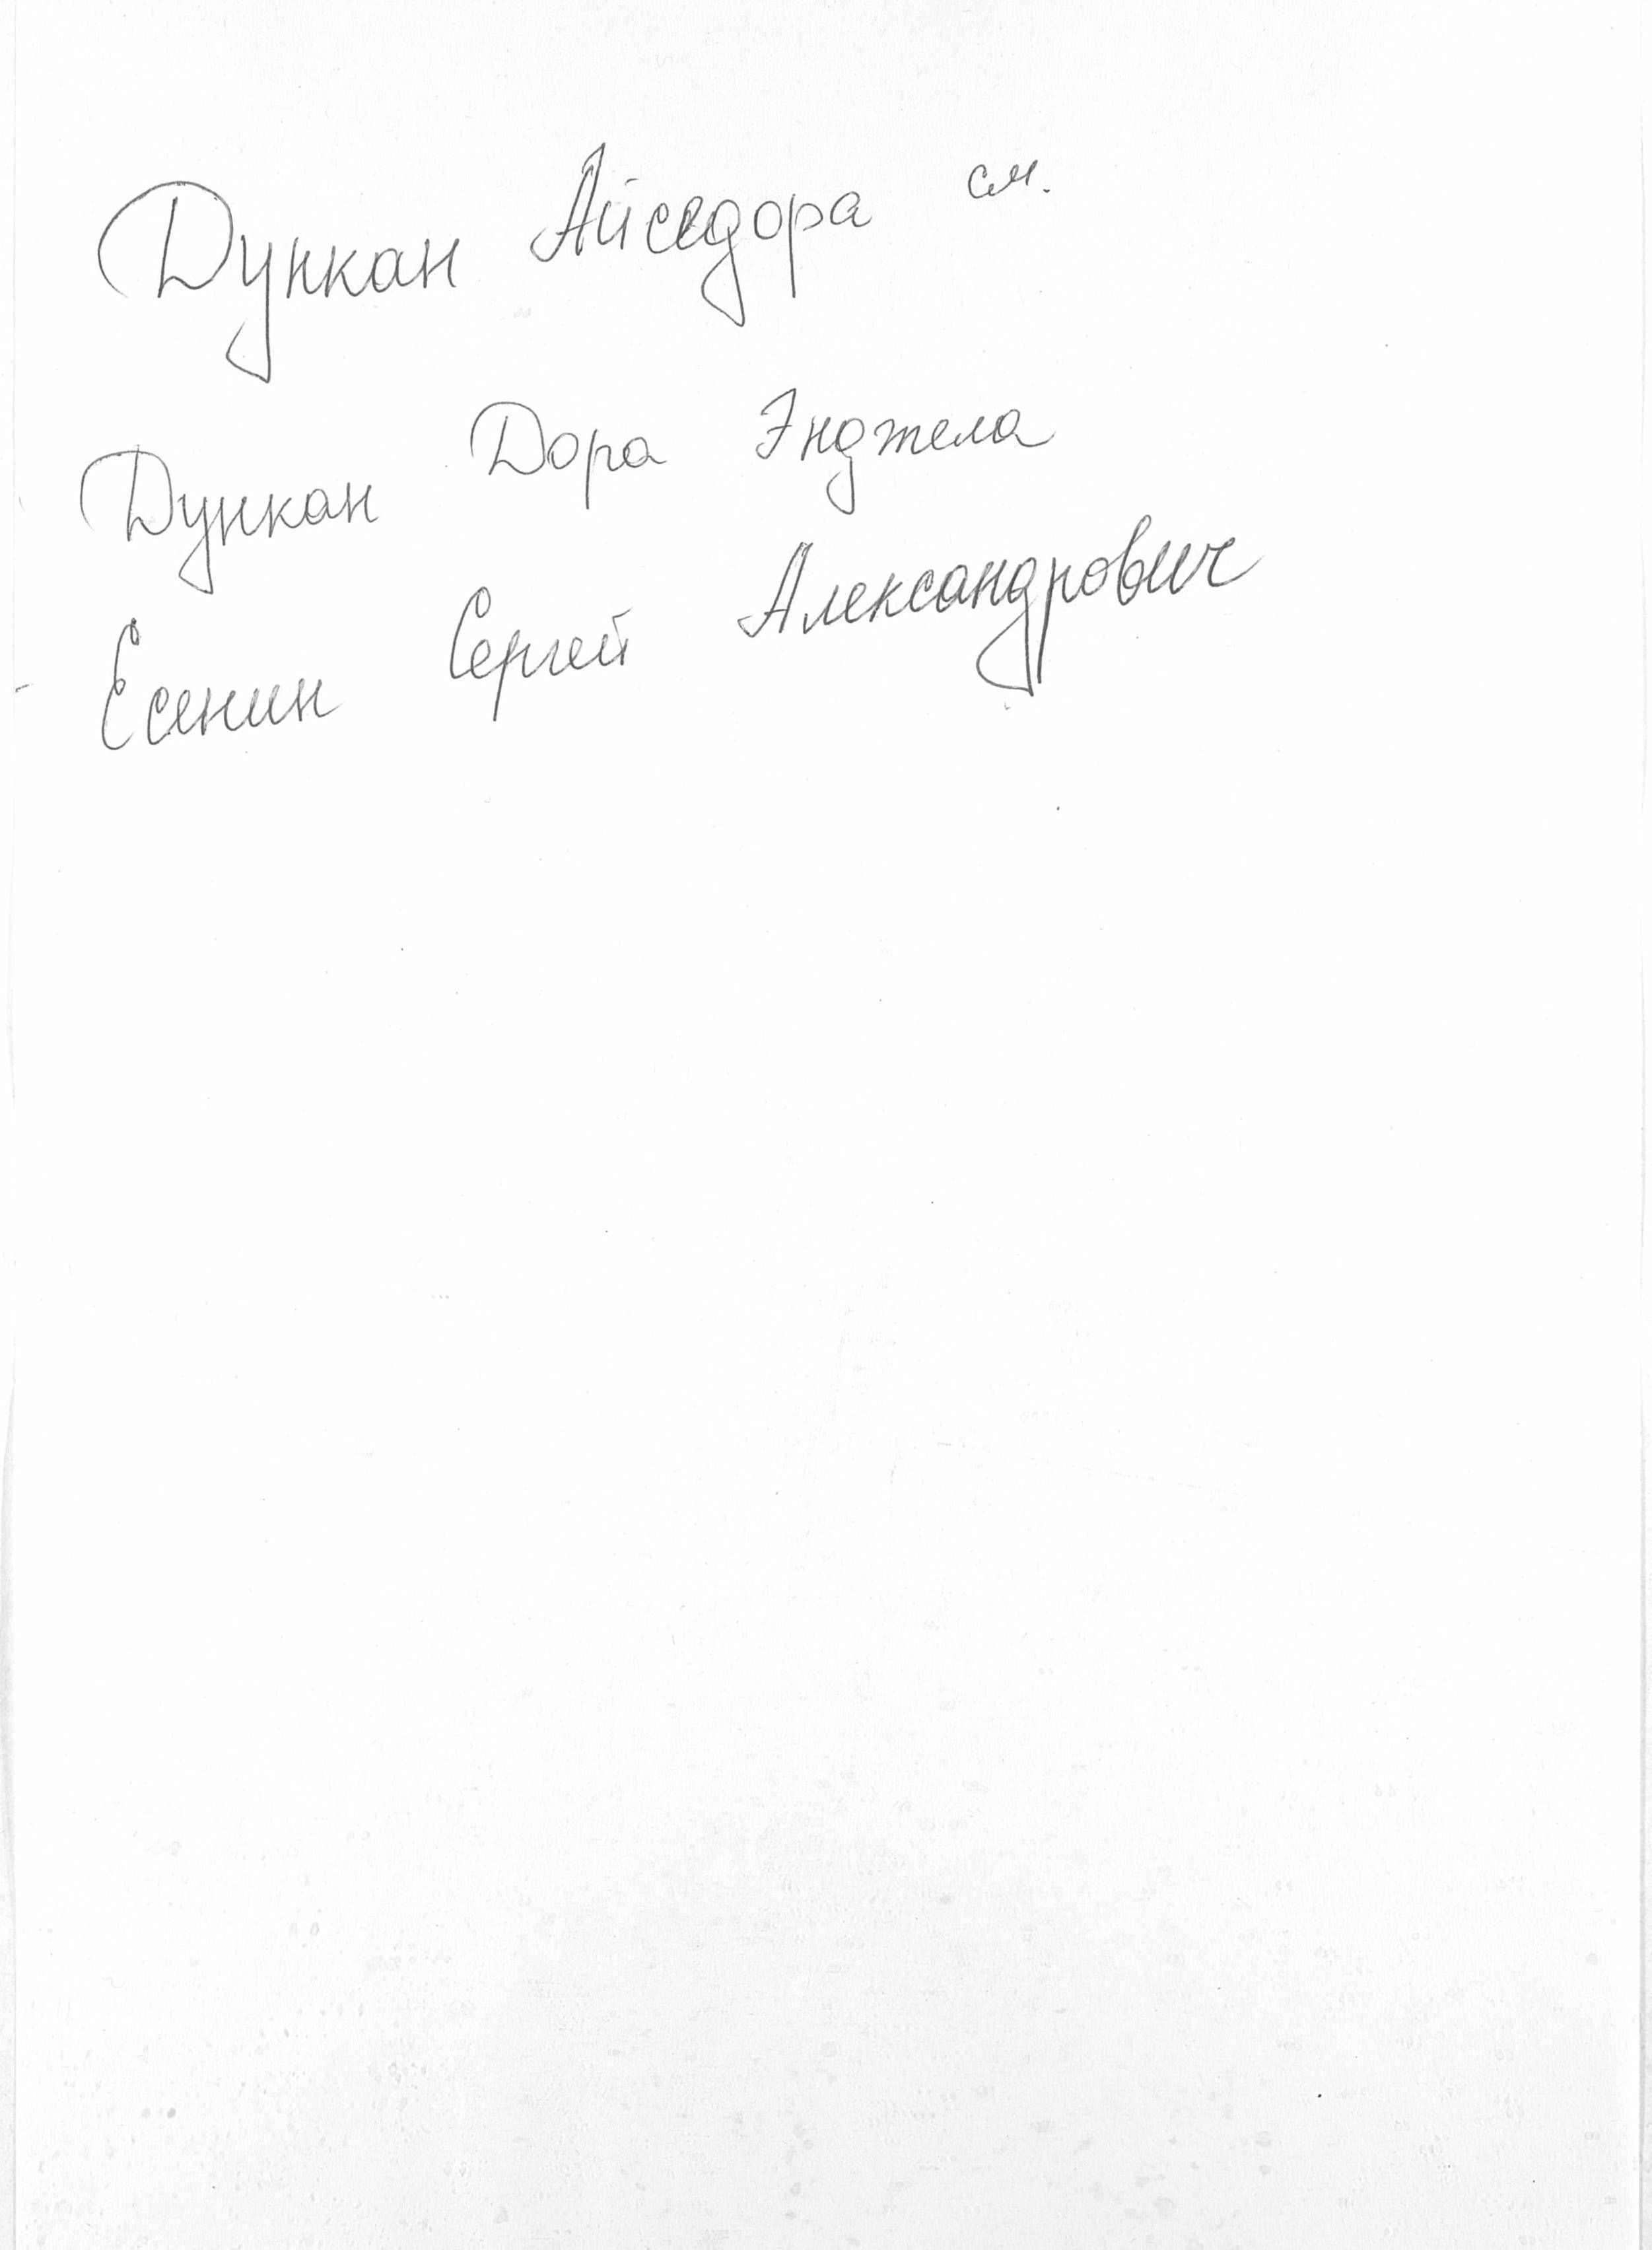 Дункан Айседора см.
Дункан Дора Энджела
Есенин Сергей Александрович